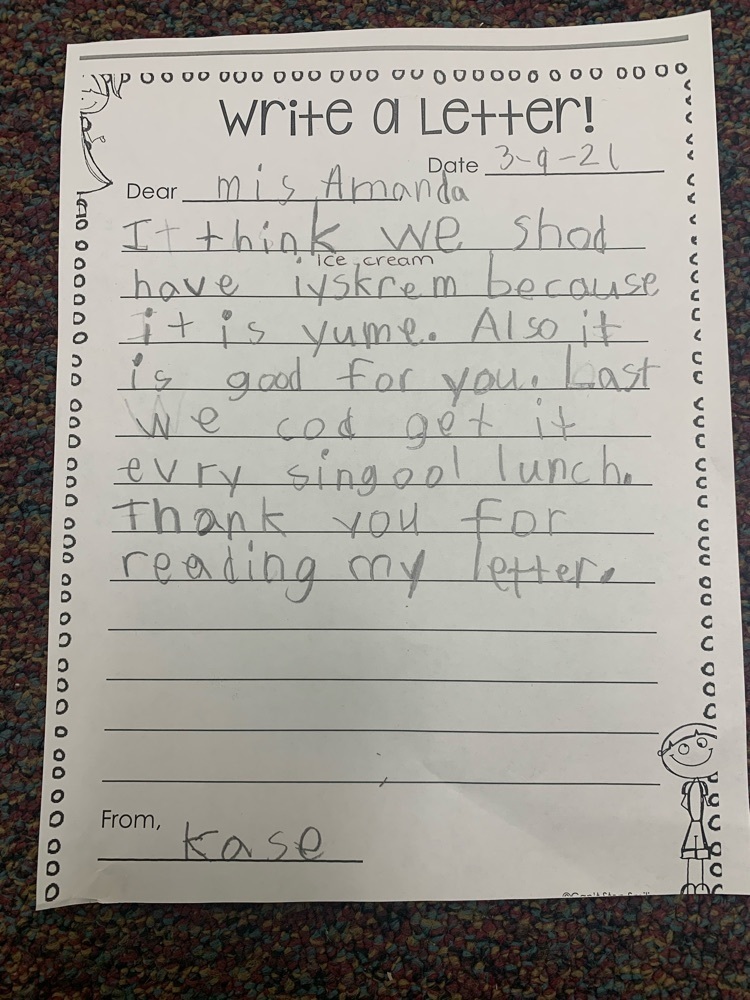 Write a Letter!
Date 3-9-21
Dear mis Amanda
It think we shod
ice cream
have iyskrem because
it is yume. Also it
is good for you. Last
we cod get it
evry singool lunch.
Thank you for
reading my letter.
From,
Kase